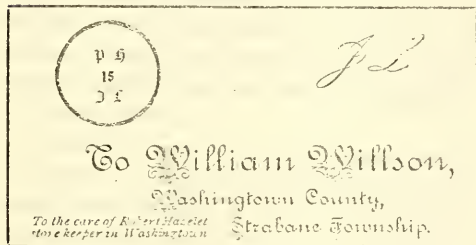 P H
15
J L
J L
To William Willson,
Washingtown County,
To the care of Robert Hazelet
store keeper in Washingtown
Strabane Township.